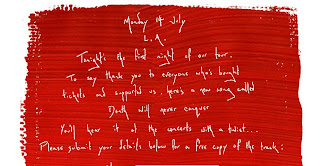 Monday 14 July
L.A.
Tonight's the first night of our tour.
To say thank you to everyone who's bought
tickets and supported us, here's a new song called
Death will never conquer
You'll hear it at the concerts with a twist...
Please submit your details below for a free copy of the track: